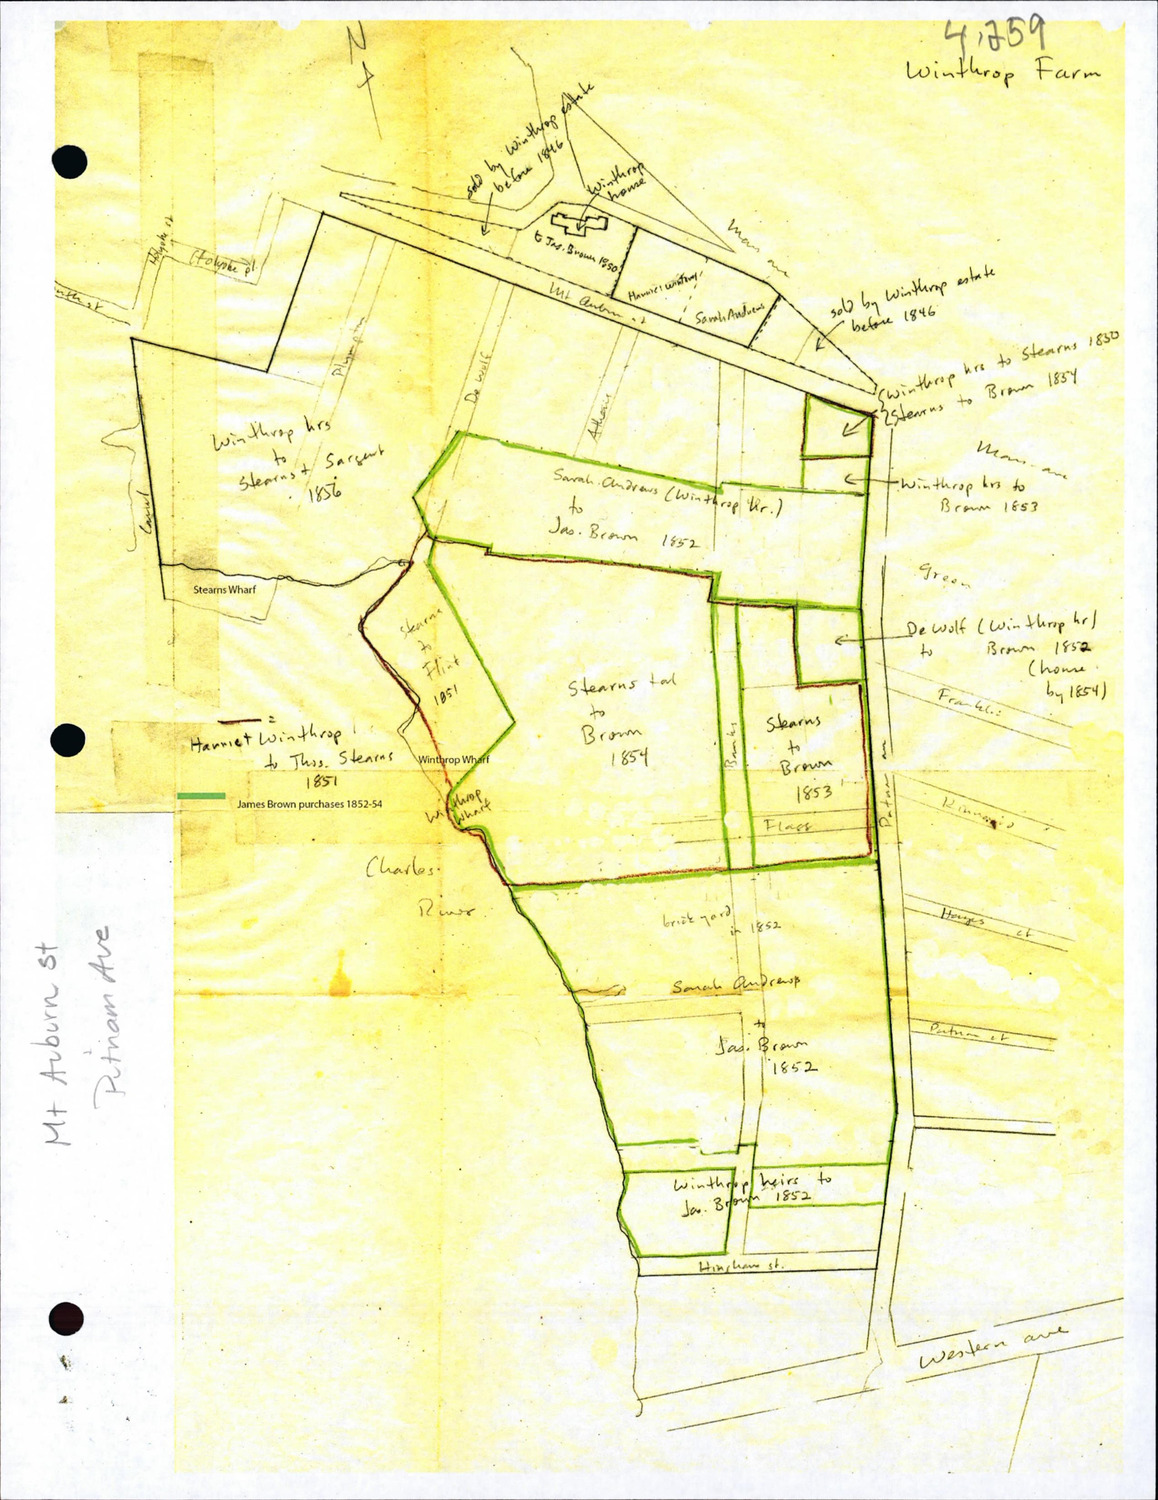 4,259
Winthrop Farm
N
sold by Winthrop estate
before 1846
Winthrop
house
to Jas. Brown 1850
Harriet Winthrop
Sarah Andrews
Mass ave
sold by Winthrop estate
before 1846
Holyoke st
Holyoke pl.
Mt Auburn st
Plympton
De Wolf
Athens
Winthrop hrs to Stearns 1850
Stearns to Brown 1854
Mass. ave
Winthrop hrs to
Brown 1853
Winthrop hrs
to
Stearns & Sargent
1856
Canal
Sarah Andrews (Winthrop Hr.)
to
Jas. Brown 1852
Green
Stearns Wharf
De Wolf (Winthrop hr)
to Brown 1852
(house
by 1854)
Stearns
to
Flint
1851
Stearns et al
to
Brown
1854
Banks
Stearns
to
Brown
1853
Franklin
Putnam av
Kinnaird
=
Harriet Winthrop
to Thos. Stearns
1851
James Brown purchases 1852-54
Winthrop Wharf
Winthrop
Wharf
Flagg
Charles
River
Hayes ct
brick yard
in 1852
Mt Auburn st
Putnam Ave
Sarah Andrews
to
Jas. Brown
1852
Putnam ct
Winthrop heirs to
Jas. Brown 1852
Hingham st.
Western ave